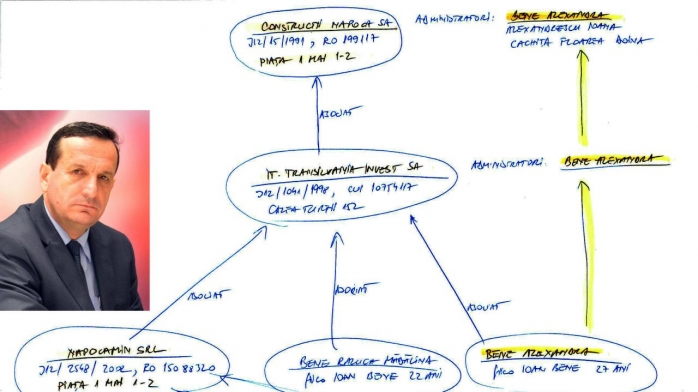 CONSTRUCTII NAPOCA SA
J12/15/1991, RO 199117
PIAȚA 1 MAI 1-2
ADMINISTRATORI: BENE ALEXANDRA
ALEXANDRESCU IOANA
CACHITA FLOAREA DOINA
ASOCIAT
IT. TRANSILVANIA INVEST SA
J12/1041/1998, CUI 10754117
CALEA TURZII 152
ADMINISTRATORI: BENE ALEXANDRA
ASOCIAT
ASOCIAT
ASOCIAT
NAPOCAMIN SRL
J12/2548/2002, RO 15088320
PIAȚA 1 MAI 1-2
BENE RALUCA MĂDĂLINA
fiica IOAN BENE 22 ANI
BENE ALEXANDRA
fiica IOAN BENE 27 ANI